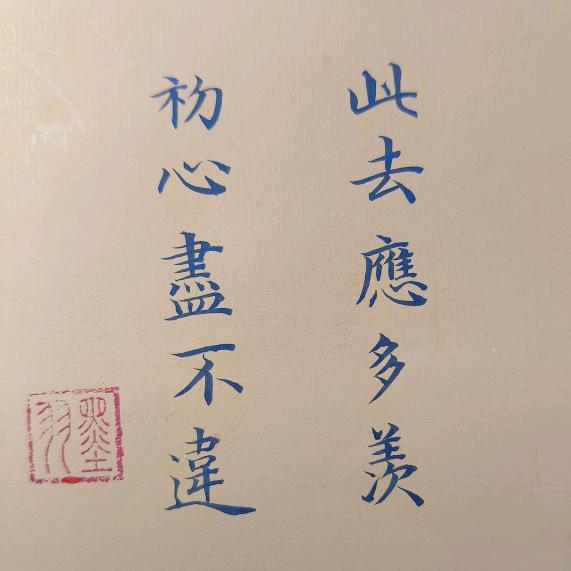 此去應多羨
初心盡不違
墨羽